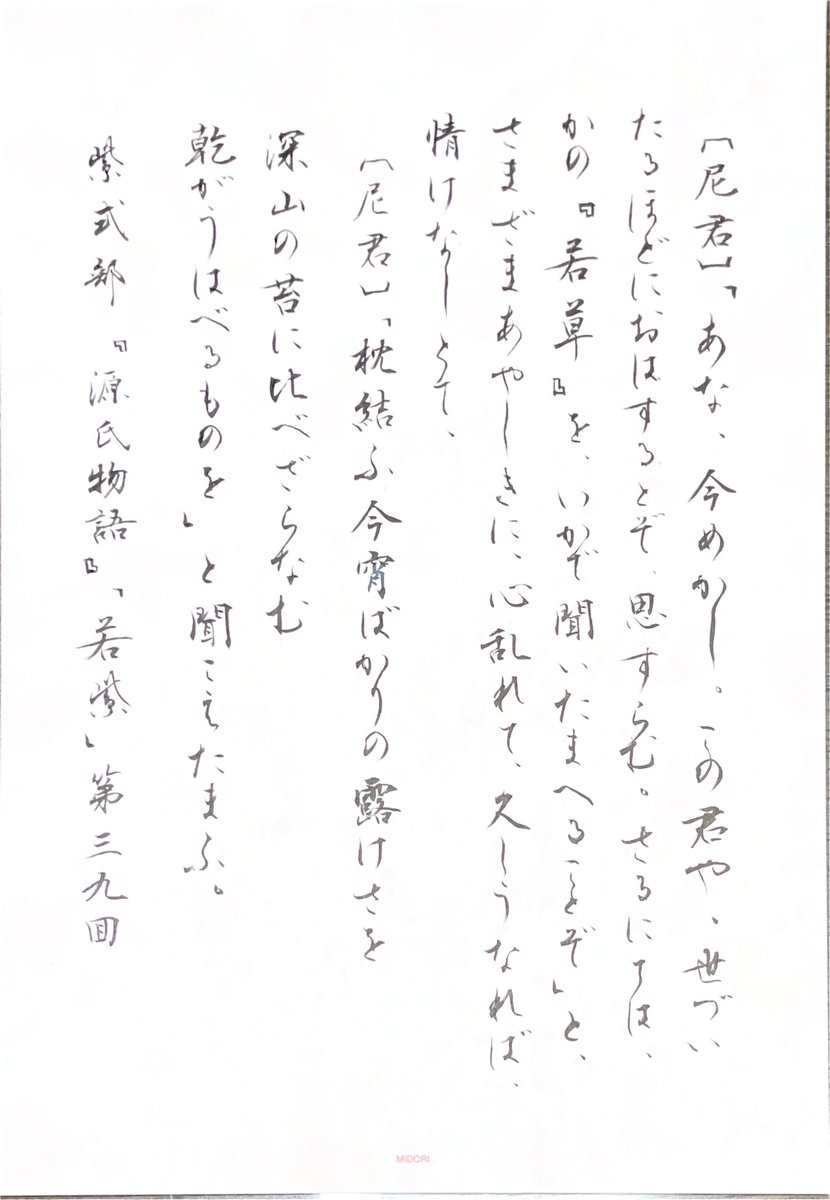 ［尼君］「あな、今めかし。この君や、世づい
たるほどにおはするとぞ、思すらむ。さるにては、
かの『若草』を、いかで聞いたまへることぞ」と、
さまざまあやしきに、心乱れて、久しうなれば、
情けなしとて、
［尼君］「枕結ふ今宵ばかりの露けさを
深山の苔に比べざらなむ
乾がうはべるものを」と聞こえたまふ。
紫式部『源氏物語』「若紫」第三九回
MIDORI